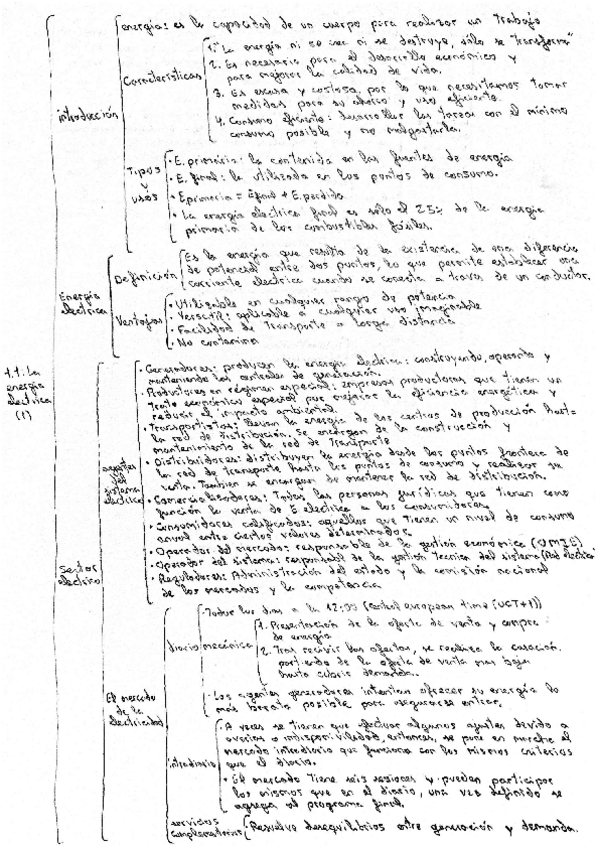 1.1. La energía electrica (1)
introducción
energia: es la capacidad de un cuerpo para realizar un trabajo
Caracteristicas
1. "La energía ni se crea ni se destruye, sólo se transforma"
2. Es necesaria para el desarrollo económico y
para mejorar la calidad de vida.
3. Es escasa y costosa, por lo que necesitamos tomar
medidas para su ahorro y uso eficiente.
4. Consumo eficiente: desarrollar las tareas con el mínimo
consumo posible y no malgastarla.
Tipos y usos
· E. primaria: la contenida en las fuentes de energía
· E. final: la utilizada en los puntos de consumo.
· Eprimaria = Efinal + E.perdida
· La energía electrica final es sólo el 25% de la energía
primaria de los combustibles fósiles.
Energía electrica
Definición
Es la energía que resulta de la existencia de una diferencia
de potencial entre dos puntos, lo que permite establecer una
corriente electrica cuando se conecta a traves de un conductor.
Ventajas
· Utilizable en cualquier rango de potencia
· Versatil: aplicable a cualquier uso imaginable
· Facilidad de Transporte a larga distancia
· No contamina
Sector electrico
agentes del sistema electrico
· Generadores: producen la energía electrica: construyendo, operando y
manteniendo las centrales de generación.
· Productores en régimen especial: Empresas productoras que tienen un
trato económico especial por mejorar la eficiencia energética y
reducir el impacto ambiental.
· Transportistas: llevan la energía de los centros de producción hasta
la red de distribución. Se encargan de la construcción y
mantenimiento de la red de Transporte
· Distribuidores: distribuyen la energía desde los puntos frontera de
la red de transporte hasta los puntos de consumo y realizar su
venta. Tambien se encargan de mantener la red de distribución.
· Comercializadores: Todas las personas jurídicas que tienen como
función la venta de E electrica a los consumidores.
· Consumidores calificados: aquellos que tienen un nivel de consumo
anual entre ciertos valores determinados.
· Operador del mercado: responsable de la gestión económica (OMIE)
· Operador del sistema: responsable de la gestión Tecnica del sistema (Red electrica)
· Reguladores: Administración del estado y la comisión nacional
de los mercados y la competencia
El mercado de la electricidad
diario
· Todos los días a la 12:00 (Central european time (UCT+1))
mecánica
1. Presentación de la oferta de venta y compra
de energía
2. Tras recivir las ofertas, se realiza la casación
partiendo de la oferta de venta mas baja
hasta cubrir demanda.
· Los agentes generadores intentan ofrecer su energía lo
más barata posible para asegurarse entrar.
intradiario
· A veces se tienen que efectuar algunos ajustes devido a
averias o indisponibilidad, entonces, se pone en marcha el
mercado intradiario que funciona con los mismos criterios
que el diario.
· El mercado tiene seis sesiones y pueden participar
los mismos que en el diario, una vez definido se
agrega al programa final.
servicios complementarios
Resuelve desequilibrios entre generación y demanda.